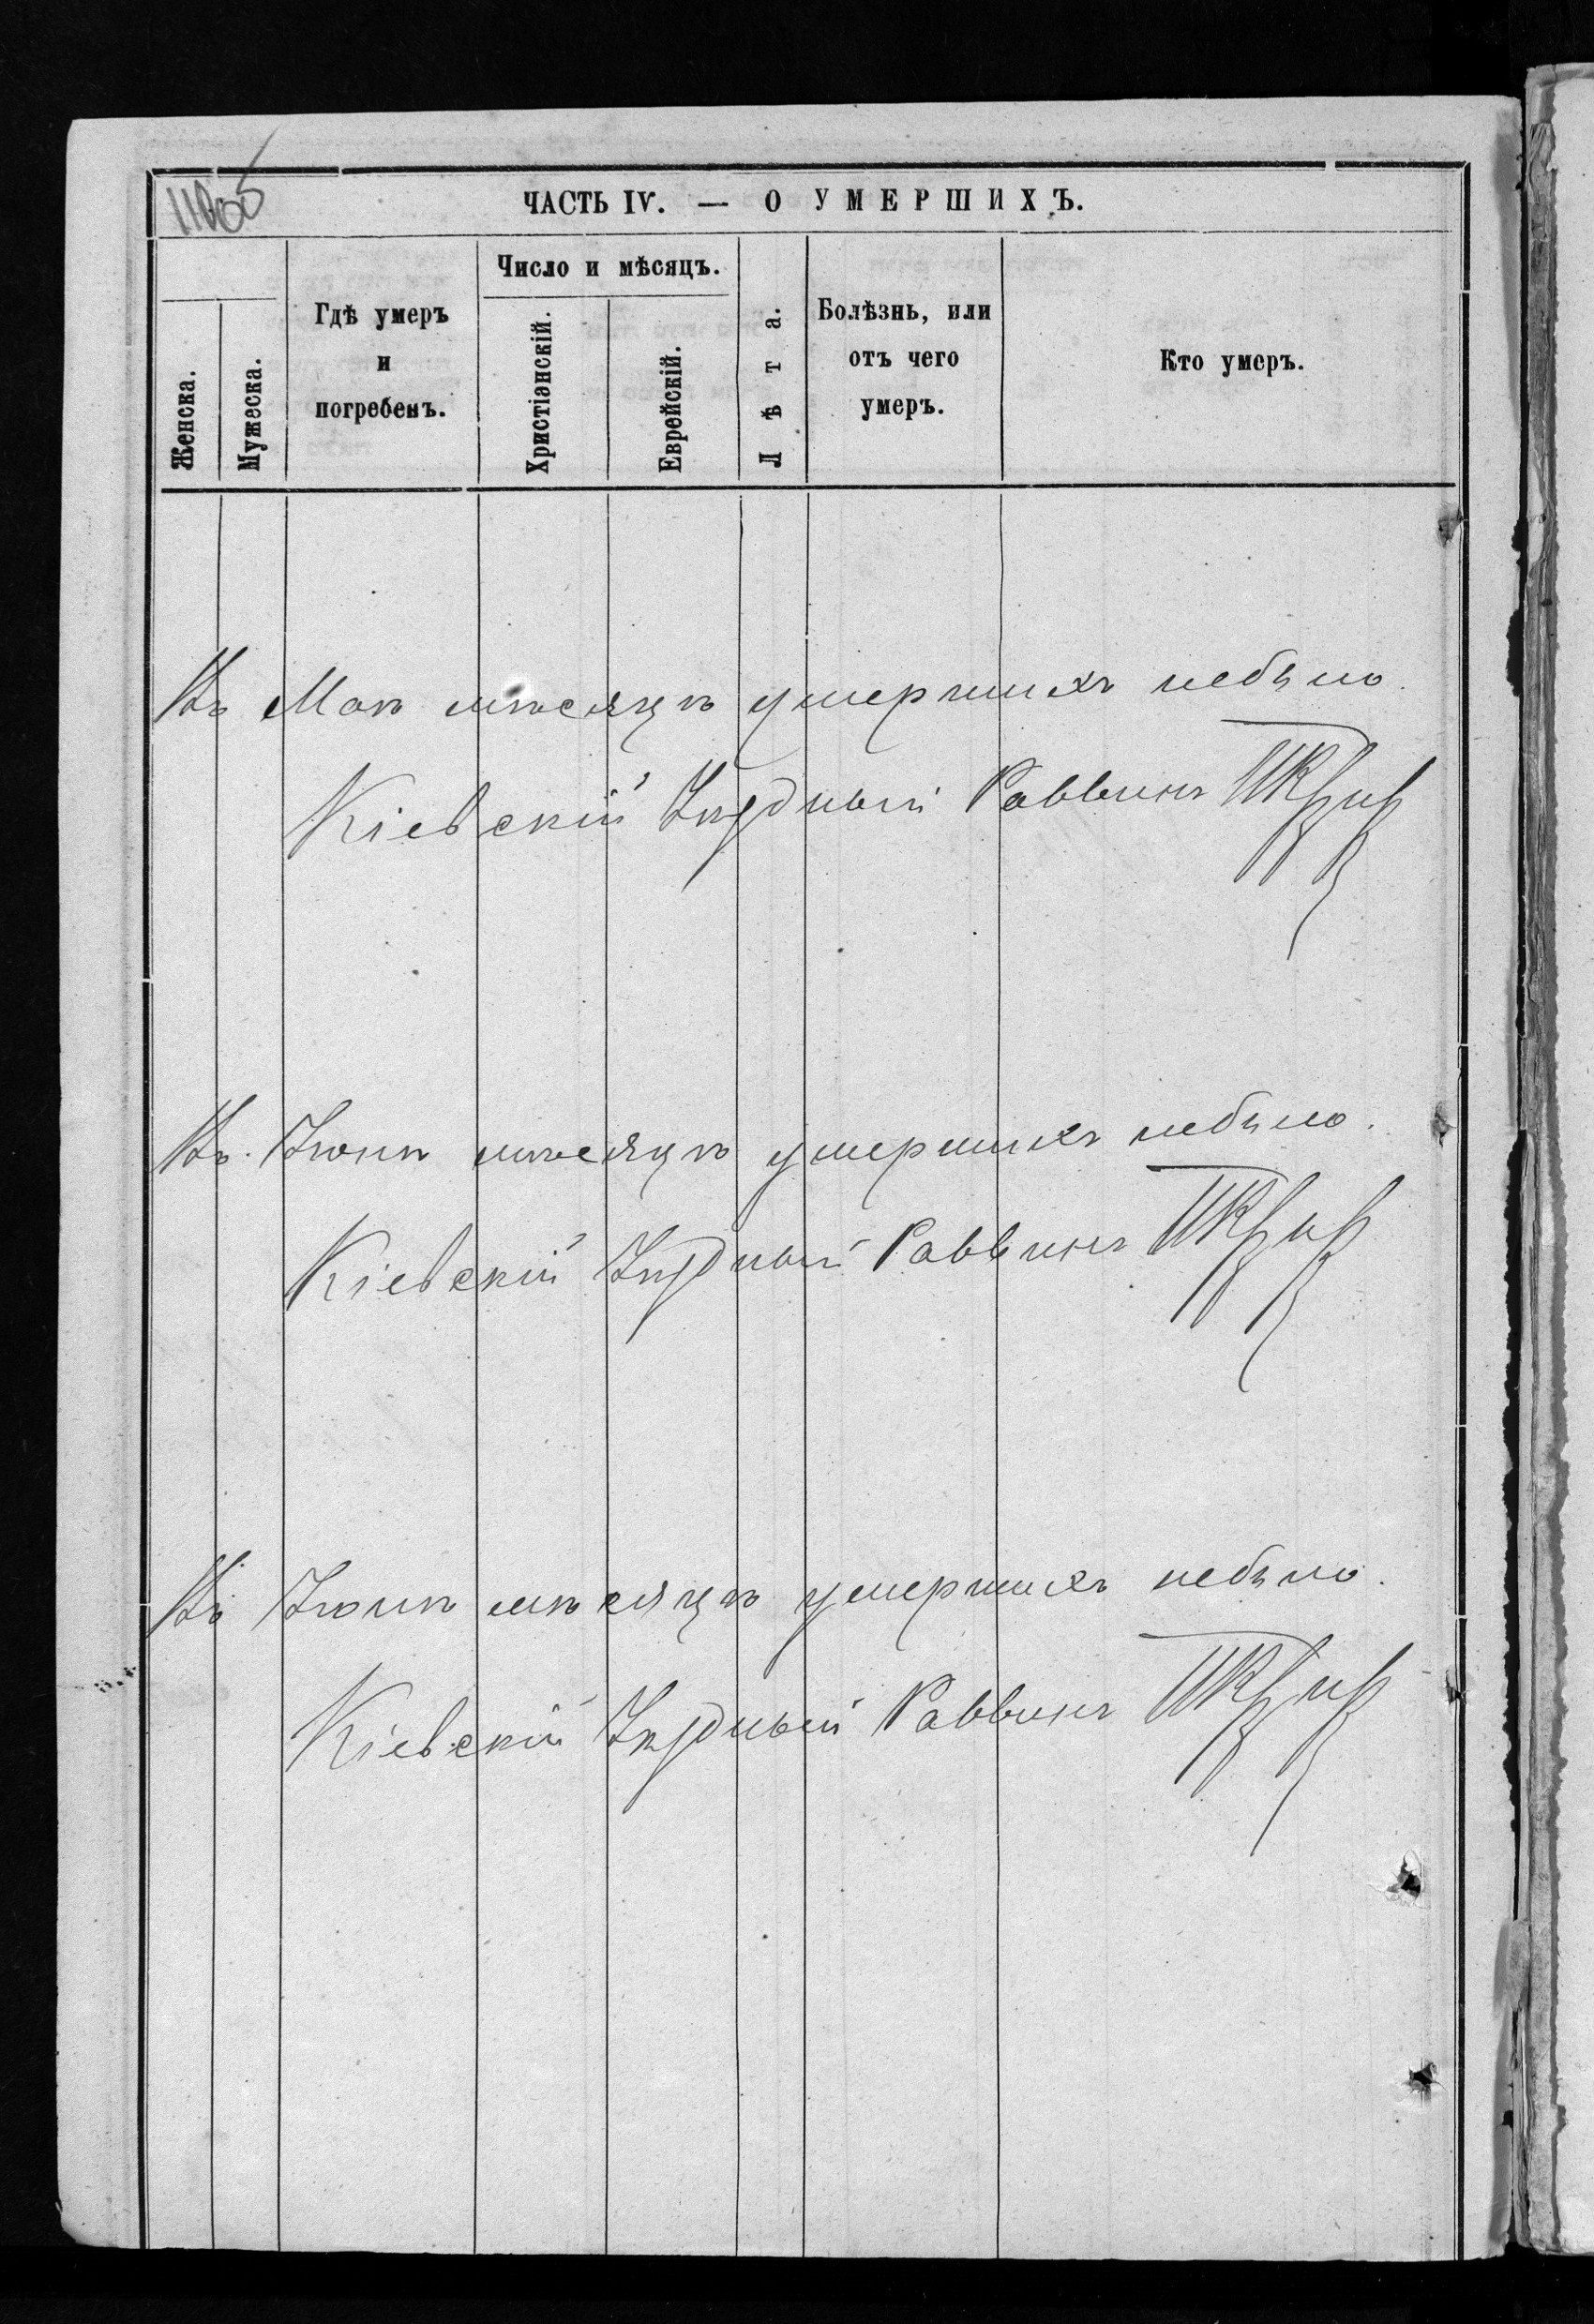 ЧАСТЬ IV. — О УМЕРШИХЪ.
Женска.
Мужеска.
Гдѣ умеръ
и
погребенъ.
Число и мѣсяцъ.
Христіанскій.
Еврейскій.
Лѣта.
Болѣзнь, или
отъ чего
умеръ.
Кто умеръ.
Въ Маѣ мѣсяцѣ умершихъ небыло.
Кіевскій Уѣздный Раввинъ
Въ Іюнѣ мѣсяцѣ умершихъ небыло.
Кіевскій Уѣздный Раввинъ
Въ Іюлѣ мѣсяцѣ умершихъ небыло.
Кіевскій Уѣздный Раввинъ